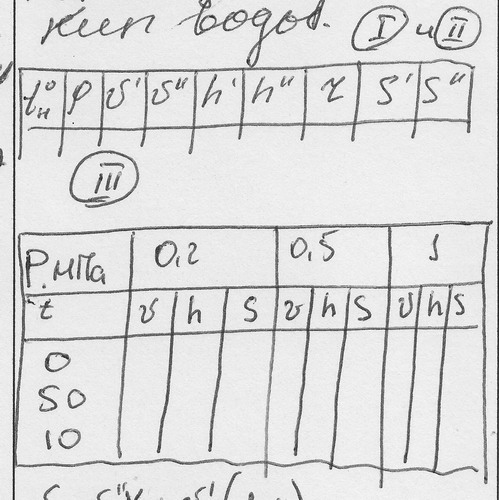 кип водов. I и II
t°н P v' v" h' h" r s' s"
III
P, мПа 0,2 0,5 1
t v h s v h s v h s
0
50
10